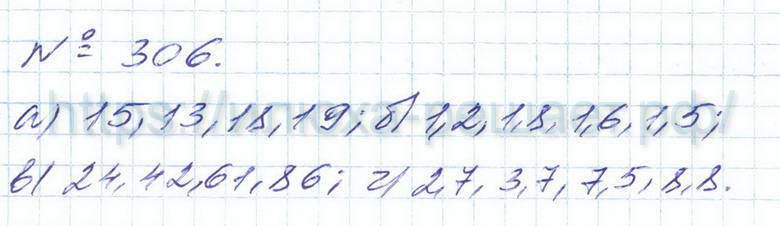 № 306.
а) 15, 13, 18, 19; б) 1,2, 1,8, 1,6, 1,5;
в) 24, 42, 61, 86; г) 2,7, 3,7, 7,5, 8,8.